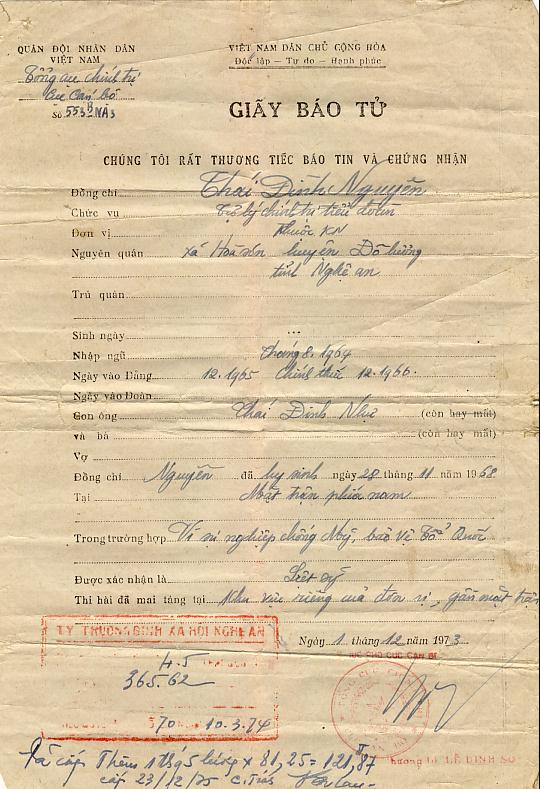 QUÂN ĐỘI NHÂN DÂN
VIỆT NAM
Tổng cục chính trị
Cục Cán bộ
Số 553B NA3
VIỆT NAM DÂN CHỦ CỘNG HÒA
Độc lập — Tự do — Hạnh phúc
GIẤY BÁO TỬ
CHÚNG TÔI RẤT THƯƠNG TIẾC BÁO TIN VÀ CHỨNG NHẬN
Đồng chí Thái Đình Nguyên
Chức vụ Trợ lý chính trị tiểu đoàn
Đơn vị thuộc KN
Nguyên quán xã Hoà sơn huyện Đô lương
tỉnh Nghệ an
Trú quán
Sinh ngày ...
Nhập ngũ tháng 8.1964
Ngày vào Đảng 12.1965 Chính thức 12.1966.
Ngày vào Đoàn
Con ông Thái Đình Như (còn hay mất)
và bà (còn hay mất)
Vợ
Đồng chí Nguyên đã hy sinh ngày 28 tháng 11 năm 1968
Tại Mặt trận phía nam
Trong trường hợp Vì sự nghiệp chống Mỹ, bảo vệ Tổ Quốc
Được xác nhận là Liệt sỹ
Thi hài đã mai táng tại Khu vực riêng của đơn vị, gần mặt trận
Ngày 1 tháng 12 năm 1973
TY THƯƠNG BINH XÃ HỘI NGHỆ AN
4.5
365.62
370 10.3.74
CỤC PHÓ CỤC CÁN BỘ
LÊ ĐÌNH SO
Đã cấp Thêm 1 thg 5 lương x 81,25 = 121,87
cấp 23/12/75